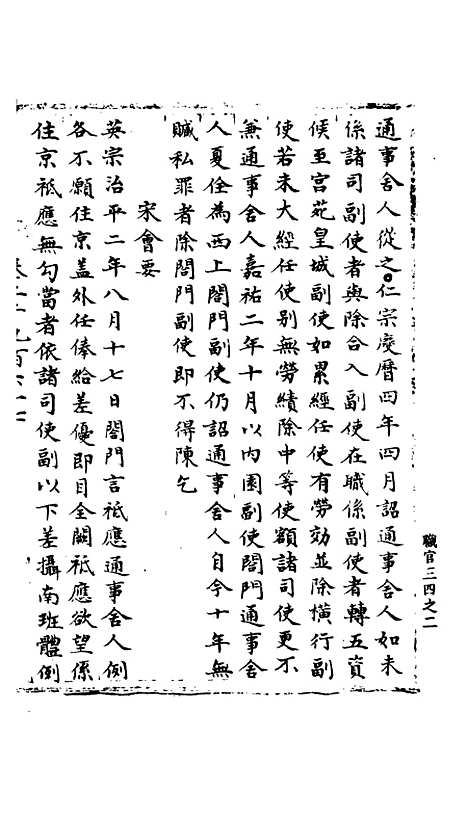 通事舍人從之仁宗慶曆四年四月詔通事舍人如未
係諸司副使者與除合入副使在職係副使者轉五資
候至宮苑皇城副使如累經任使有勞効並除橫行副
使若未大經任使别無勞績除中等使額諸司使更不
兼通事舍人嘉祐二年十月以内園副使閤門通事舍
人夏佺為西上閤門副使仍詔通事舍人自今十年無
贓私罪者除閤門副使即不得陳乞
宋會要
英宗治平二年八月十七日閤門言祗應通事舍人例
各不願住京盖外任俸給差優即目全闕祗應欲望係
住京祗應無勾當者依諸司使副以下差攝南班體例
職官三四之二